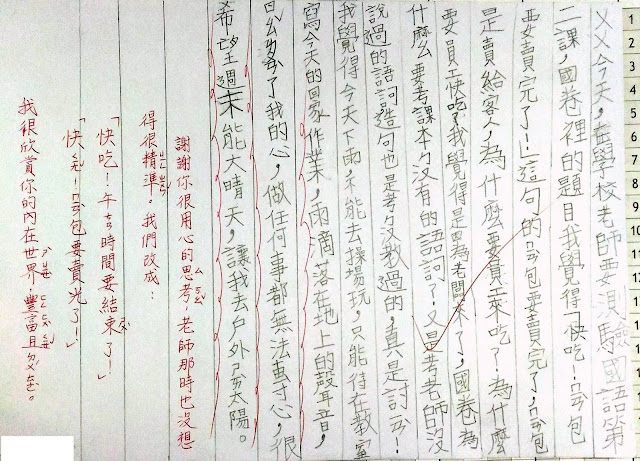 ㄨㄨ今天,在學校老師要測驗國語第
二課,國卷裡的題目我覺得「快吃!ㄇㄢ包
要賣完了!」這句的ㄇㄢ包要賣完了,ㄇㄢ包
是賣給客人,為什麼要員工來吃?為什麼
要員工快吃?我覺得是因為老闆來了,國卷為
什麼要考課本沒有的語詞?!又是考老師沒
說過的語詞造句也是考沒教過的,真是討ㄢ!
我覺得今天下雨,不能去操場玩,只能待在教室
寫今天的回家作業,雨滴落在地上的聲音,
了我的心,做任何事都無法專心,很
希望週末能大晴天,讓我去戶外ㄕㄞ太陽。
謝謝你很用心的思考,老師那時也沒想
得很精準。我們改成:
「快吃!午ㄢ時間要結束了!」
「快ㄔ!ㄇㄢ包要賣光了!」
我很欣賞你的內在世界,豐富且多。
1
2
3
4
5
6
7
8
9
10